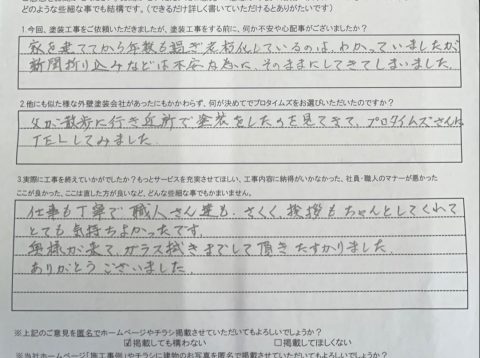 どのような些細な事でも結構です。（できるだけ詳しく書いていただけるとありがたいです）
1.今回、塗装工事をご依頼いただきましたが、塗装工事をする前に、何か不安や心配事がございましたか？
家を建ててから年数も過ぎ老朽化しているのは、わかっていましたが、
新聞折り込みなどは不安な為に、そのままにしてきてしまいました。
2.他にも似た様な外壁塗装会社があったにもかかわらず、何が決めてでプロタイムズをお選びいただいたのですか？
父が散歩に行き近所で塗装をしたのを見てきて、プロタイムズさんに
TELしてみました。
3.実際に工事を終えていかがでしたか？もっとサービスを充実させてほしい、工事内容に納得がいかなかった、社員・職人のマナーが悪かった
ここが良かった、ここは直した方が良いなど、どんな些細な事でもかまいません。
仕事も丁寧で職人さん達も、きさくで、挨拶もちゃんとしてくれて
とても気持ちよかったです。
奥様が来て、ガラス拭きまでして頂きたすかりました。
ありがとうございました。
※上記のご意見を匿名でホームページやチラシ掲載させていただいてもよろしいでしょうか？
☑掲載しても構わない　□掲載してほしくない
※当社ホームページ「施工事例」やチラシに建物のお写真を匿名で掲載させていただいてもよろしいでしょうか？